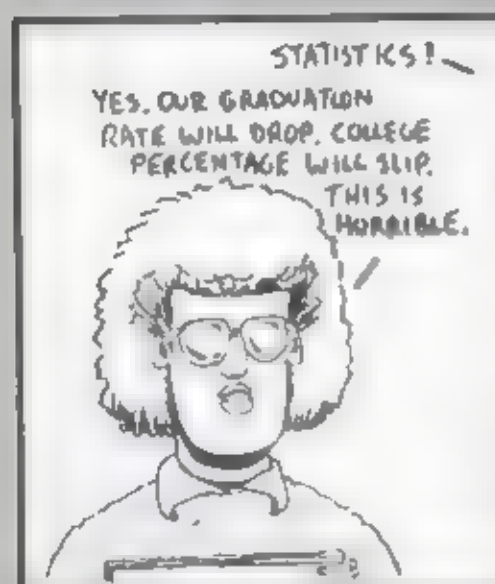 STATISTICS!
YES. OUR GRADUATION
RATE WILL DROP. COLLEGE
PERCENTAGE WILL SLIP.
THIS IS
HORRIBLE.